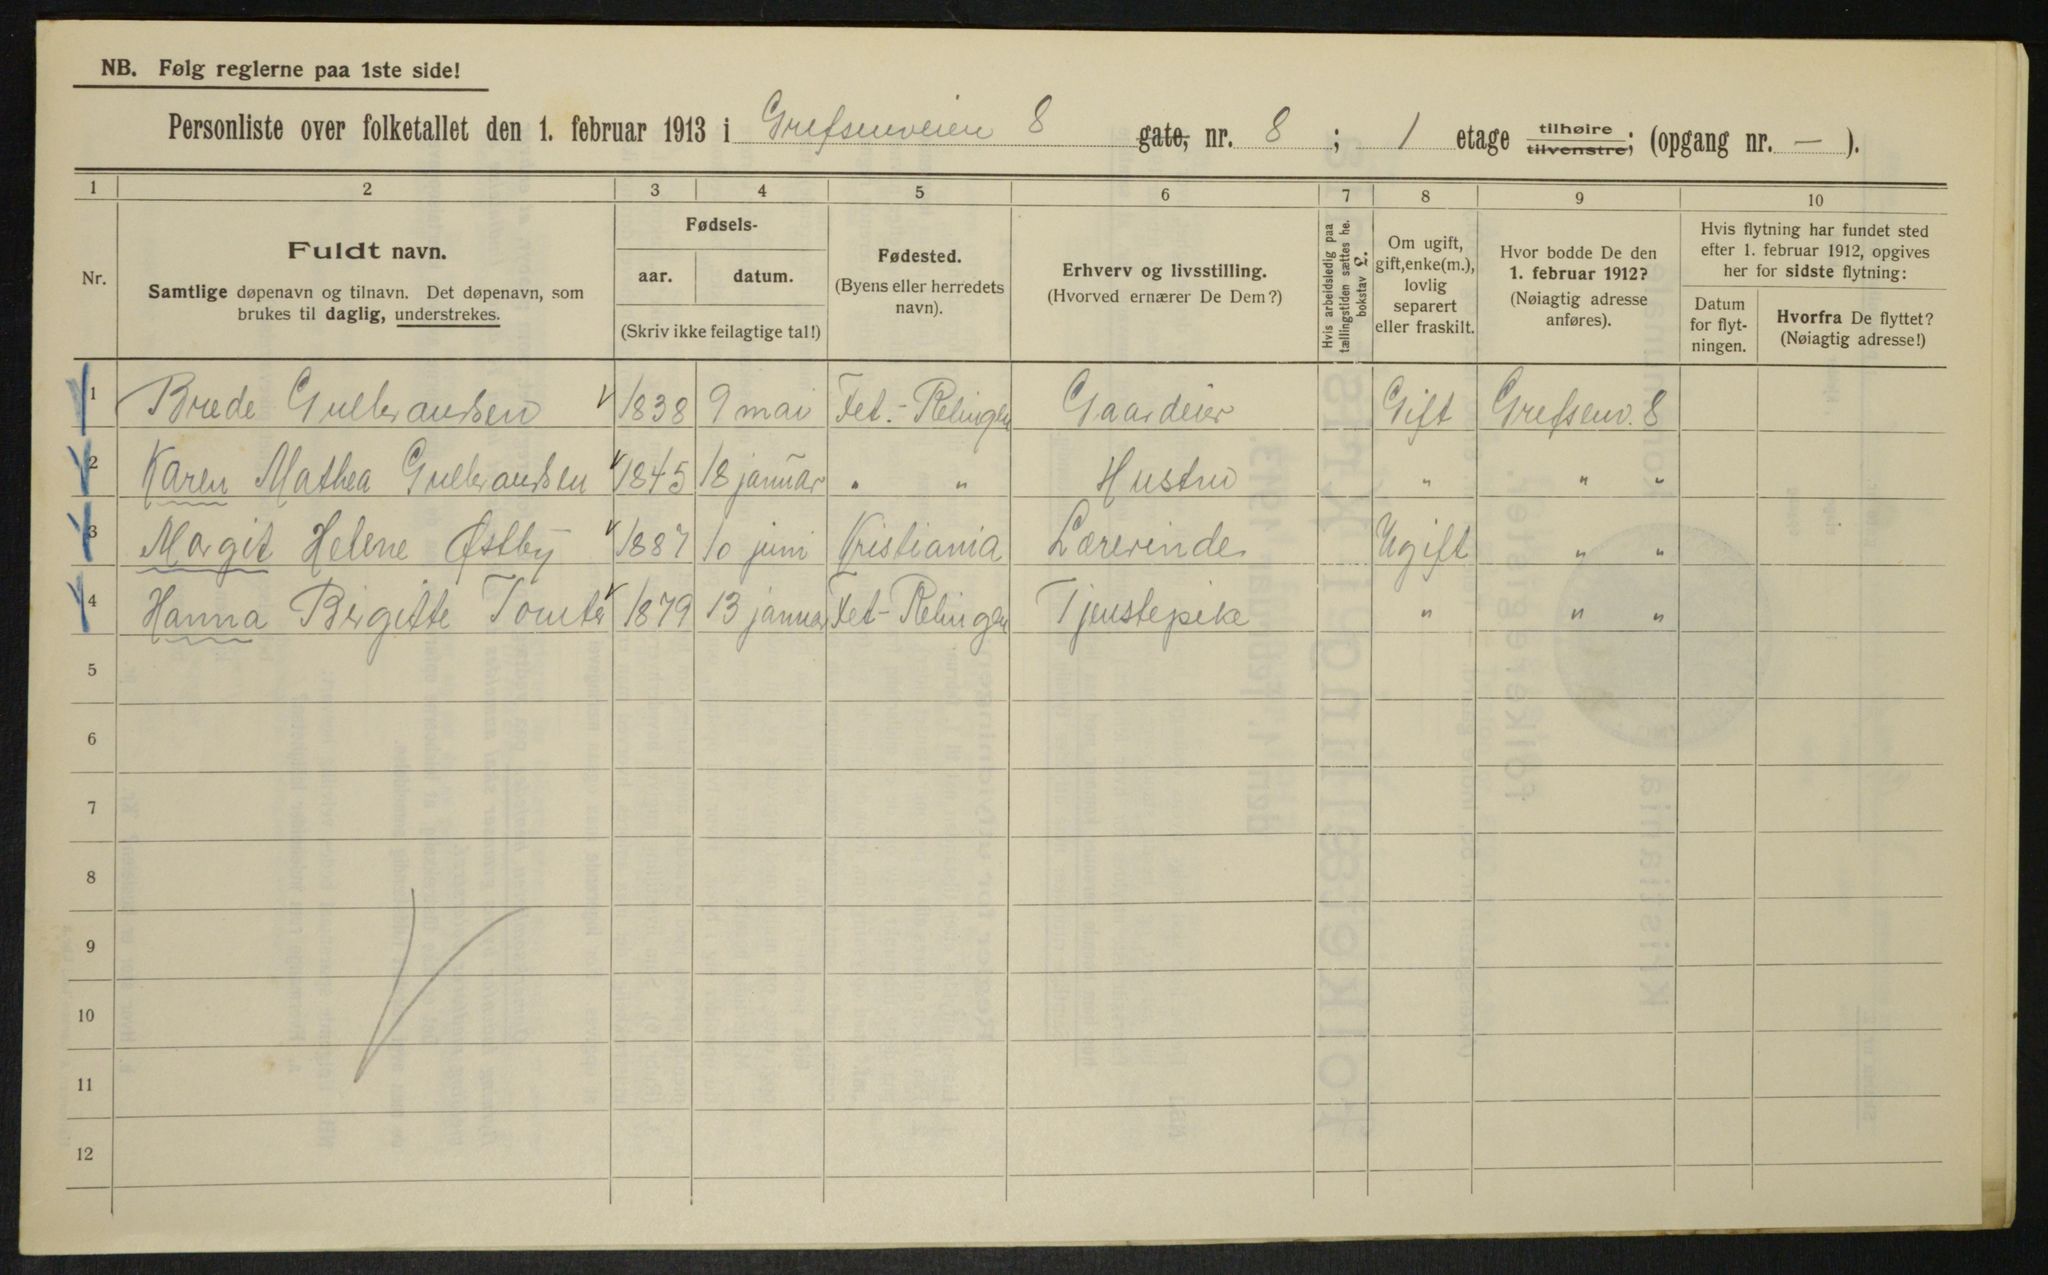 NB. Følg reglerne paa 1ste side!
Personliste over folketallet den 1. februar 1913 i Grefsenveien 8 gate, nr. 8 ; 1 etage tilhøire tilvenstre; (opgang nr. — ).
1 2 3 4 5 6 7 8 9 10
Nr.
Fuldt navn.
Samtlige døpenavn og tilnavn. Det døpenavn, som
brukes til daglig, understrekes.
Fødsels-
aar. datum.
(Skriv ikke feilagtige tal!)
Fødested.
(Byens eller herredets
navn).
Erhverv og livsstilling.
(Hvorved ernærer De Dem?)
Hvis arbeidsledig paa
tællingstiden sættes he.
bokstav L.
Om ugift,
gift, enke(m.),
lovlig
separert
eller fraskilt.
Hvor bodde De den
1. februar 1912?
(Nøiagtig adresse
anføres).
Hvis flytning har fundet sted
efter 1. februar 1912, opgives
her for sidste flytning:
Datum
for flyt-
ningen.
Hvorfra De flyttet?
(Nøiagtig adresse!)
1 Brede Gulbrandsen 1838 9 mai Fet.- Relingen Gaardeier Gift Grefsenv. 8
2 Karen Mathea Gulbrandsen 1845 18 januar " " Hustru " " "
3 Margit Helene Østby 1887 10 juni Kristiania Lærerinde Ugift " "
4 Hanna Birgitte Tomter 1879 13 januar Fet- Relingen Tjenstepike " " "
5
6
7
8
9
10
11
12